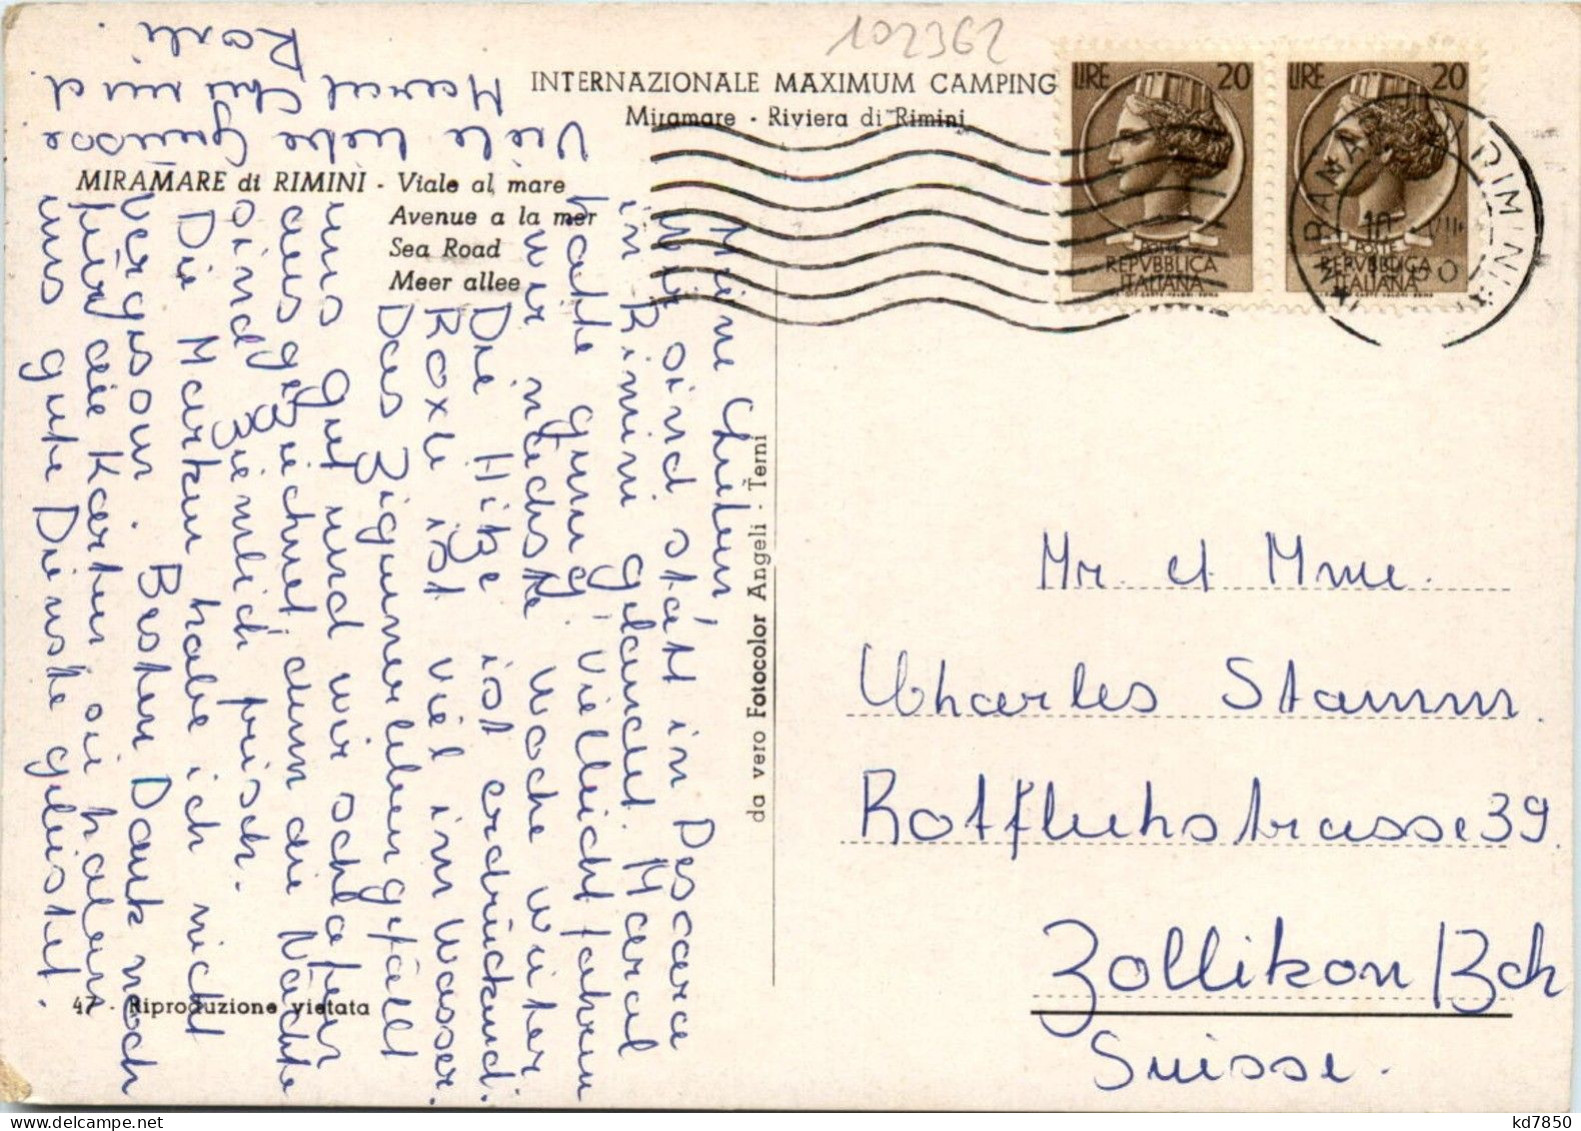 102362
INTERNAZIONALE MAXIMUM CAMPING
Miramare - Riviera di Rimini
MIRAMARE di RIMINI - Viale al mare
Avenue a la mer
Sea Road
Meer allee
LIRE 20
POSTE
REPVBBLICA
ITALIANA
LIRE 20
POSTE
REPVBBLICA
ITALIANA
Meine
Wir sind statt in Pescara
in Rimini gelandet. Marcel
hatte genug. Vielleicht fahren
wir nächste Woche weiter.
Die Hitze ist erdrückend.
Roxli ist viel im Wasser.
Das Zigeunerleben gefällt
uns gut und wir schlafen
ausgezeichnet, denn die Nächte
sind ziemlich frisch.
Die Marken habe ich nicht
vergessen. Besten Dank noch
für die Karten sie haben
uns gute Dienste geleistet.
Viele liebe Grüsse
Marcel und
Roxli.
da vero Fotocolor Angeli - Terni
47 - Riproduzione vietata
Mr. et Mme.
Charles Stamm.
Rotfluhstrasse 39.
Zollikon/Zch
Suisse.
kd7850